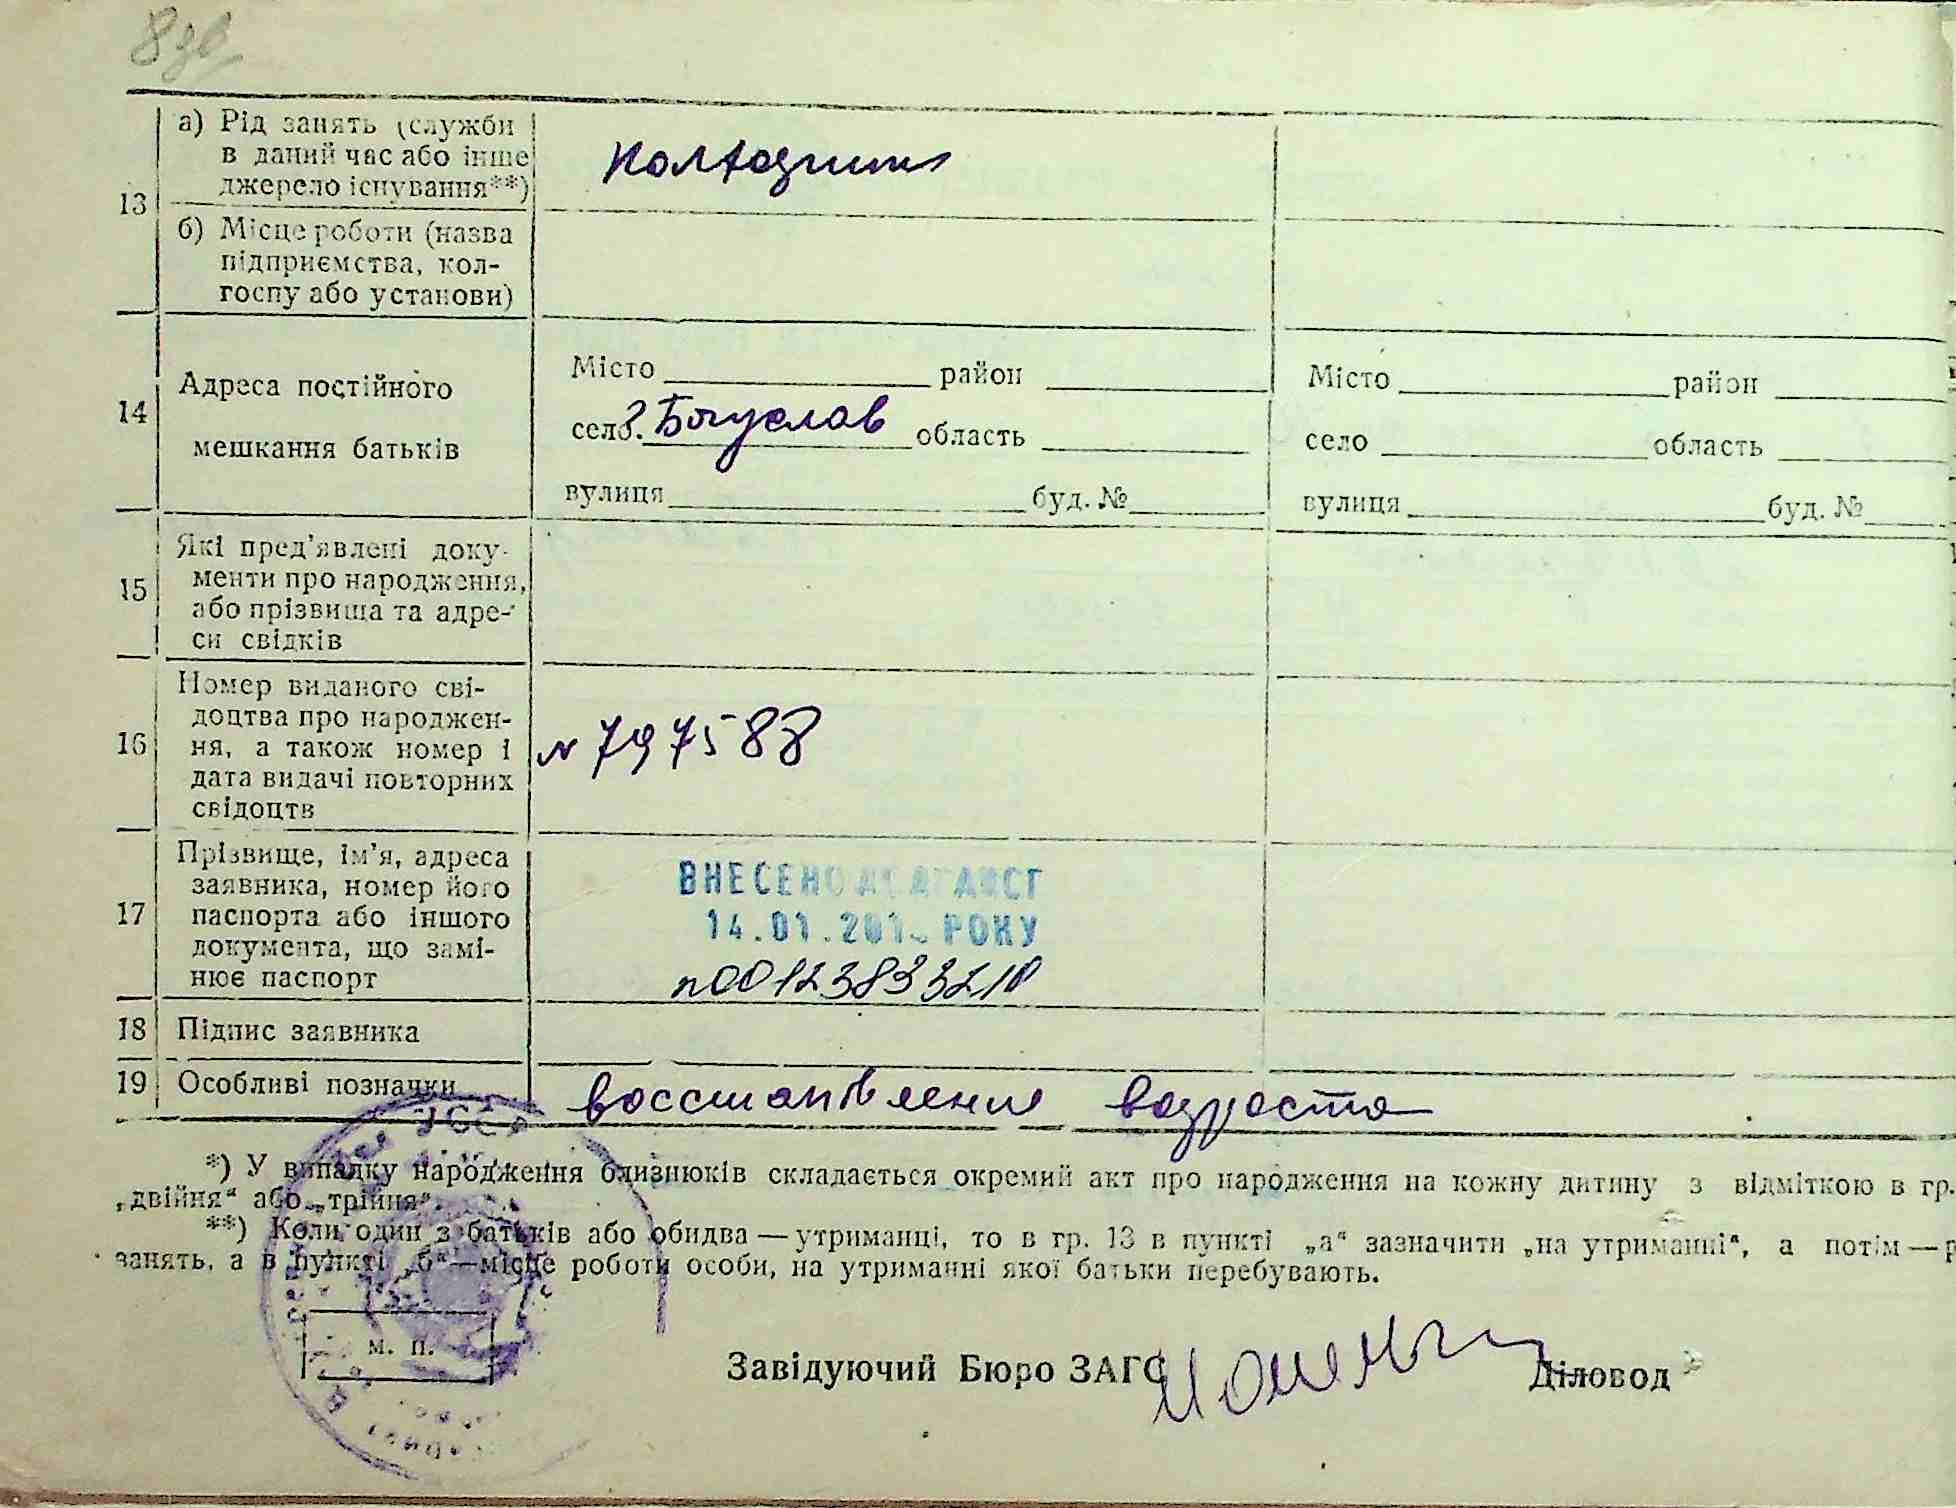 8 зв
13
а) Рід занять (служби
в даний час або інше
джерело існування**)
Колгоспник
б) Місце роботи (назва
підприємства, кол-
госпу або установи)
14
Адреса постійного
мешкання батьків
Місто район
село. Богуслав область
вулиця буд. №
Місто район
село область
вулиця буд. №
15
Які пред'явлені доку-
менти про народження,
або прізвища та адре-
си свідків
16
Номер виданого сві-
доцтва про народжен-
ня, а також номер і
дата видачі повторних
свідоцтв
№ 797588
17
Прізвище, ім'я, адреса
заявника, номер його
паспорта або іншого
документа, що замі-
нює паспорт
ВНЕСЕНО ДО ДРАЦСГ
14.01. РОКУ
18 Підпис заявника
19 Особливі позначки
восстановление возраста
*) У випадку народження близнюків складається окремий акт про народження на кожну дитину з відміткою в гр.
„двійня“ або „трійня“.
**) Коли один з батьків або обидва — утриманці, то в гр. 13 в пункті „а“ зазначити „на утриманні“, а потім — р
занять, а в пункті „б“—місце роботи особи, на утриманні якої батьки перебувають.
м. п.
Завідуючий Бюро ЗАГС Діловод